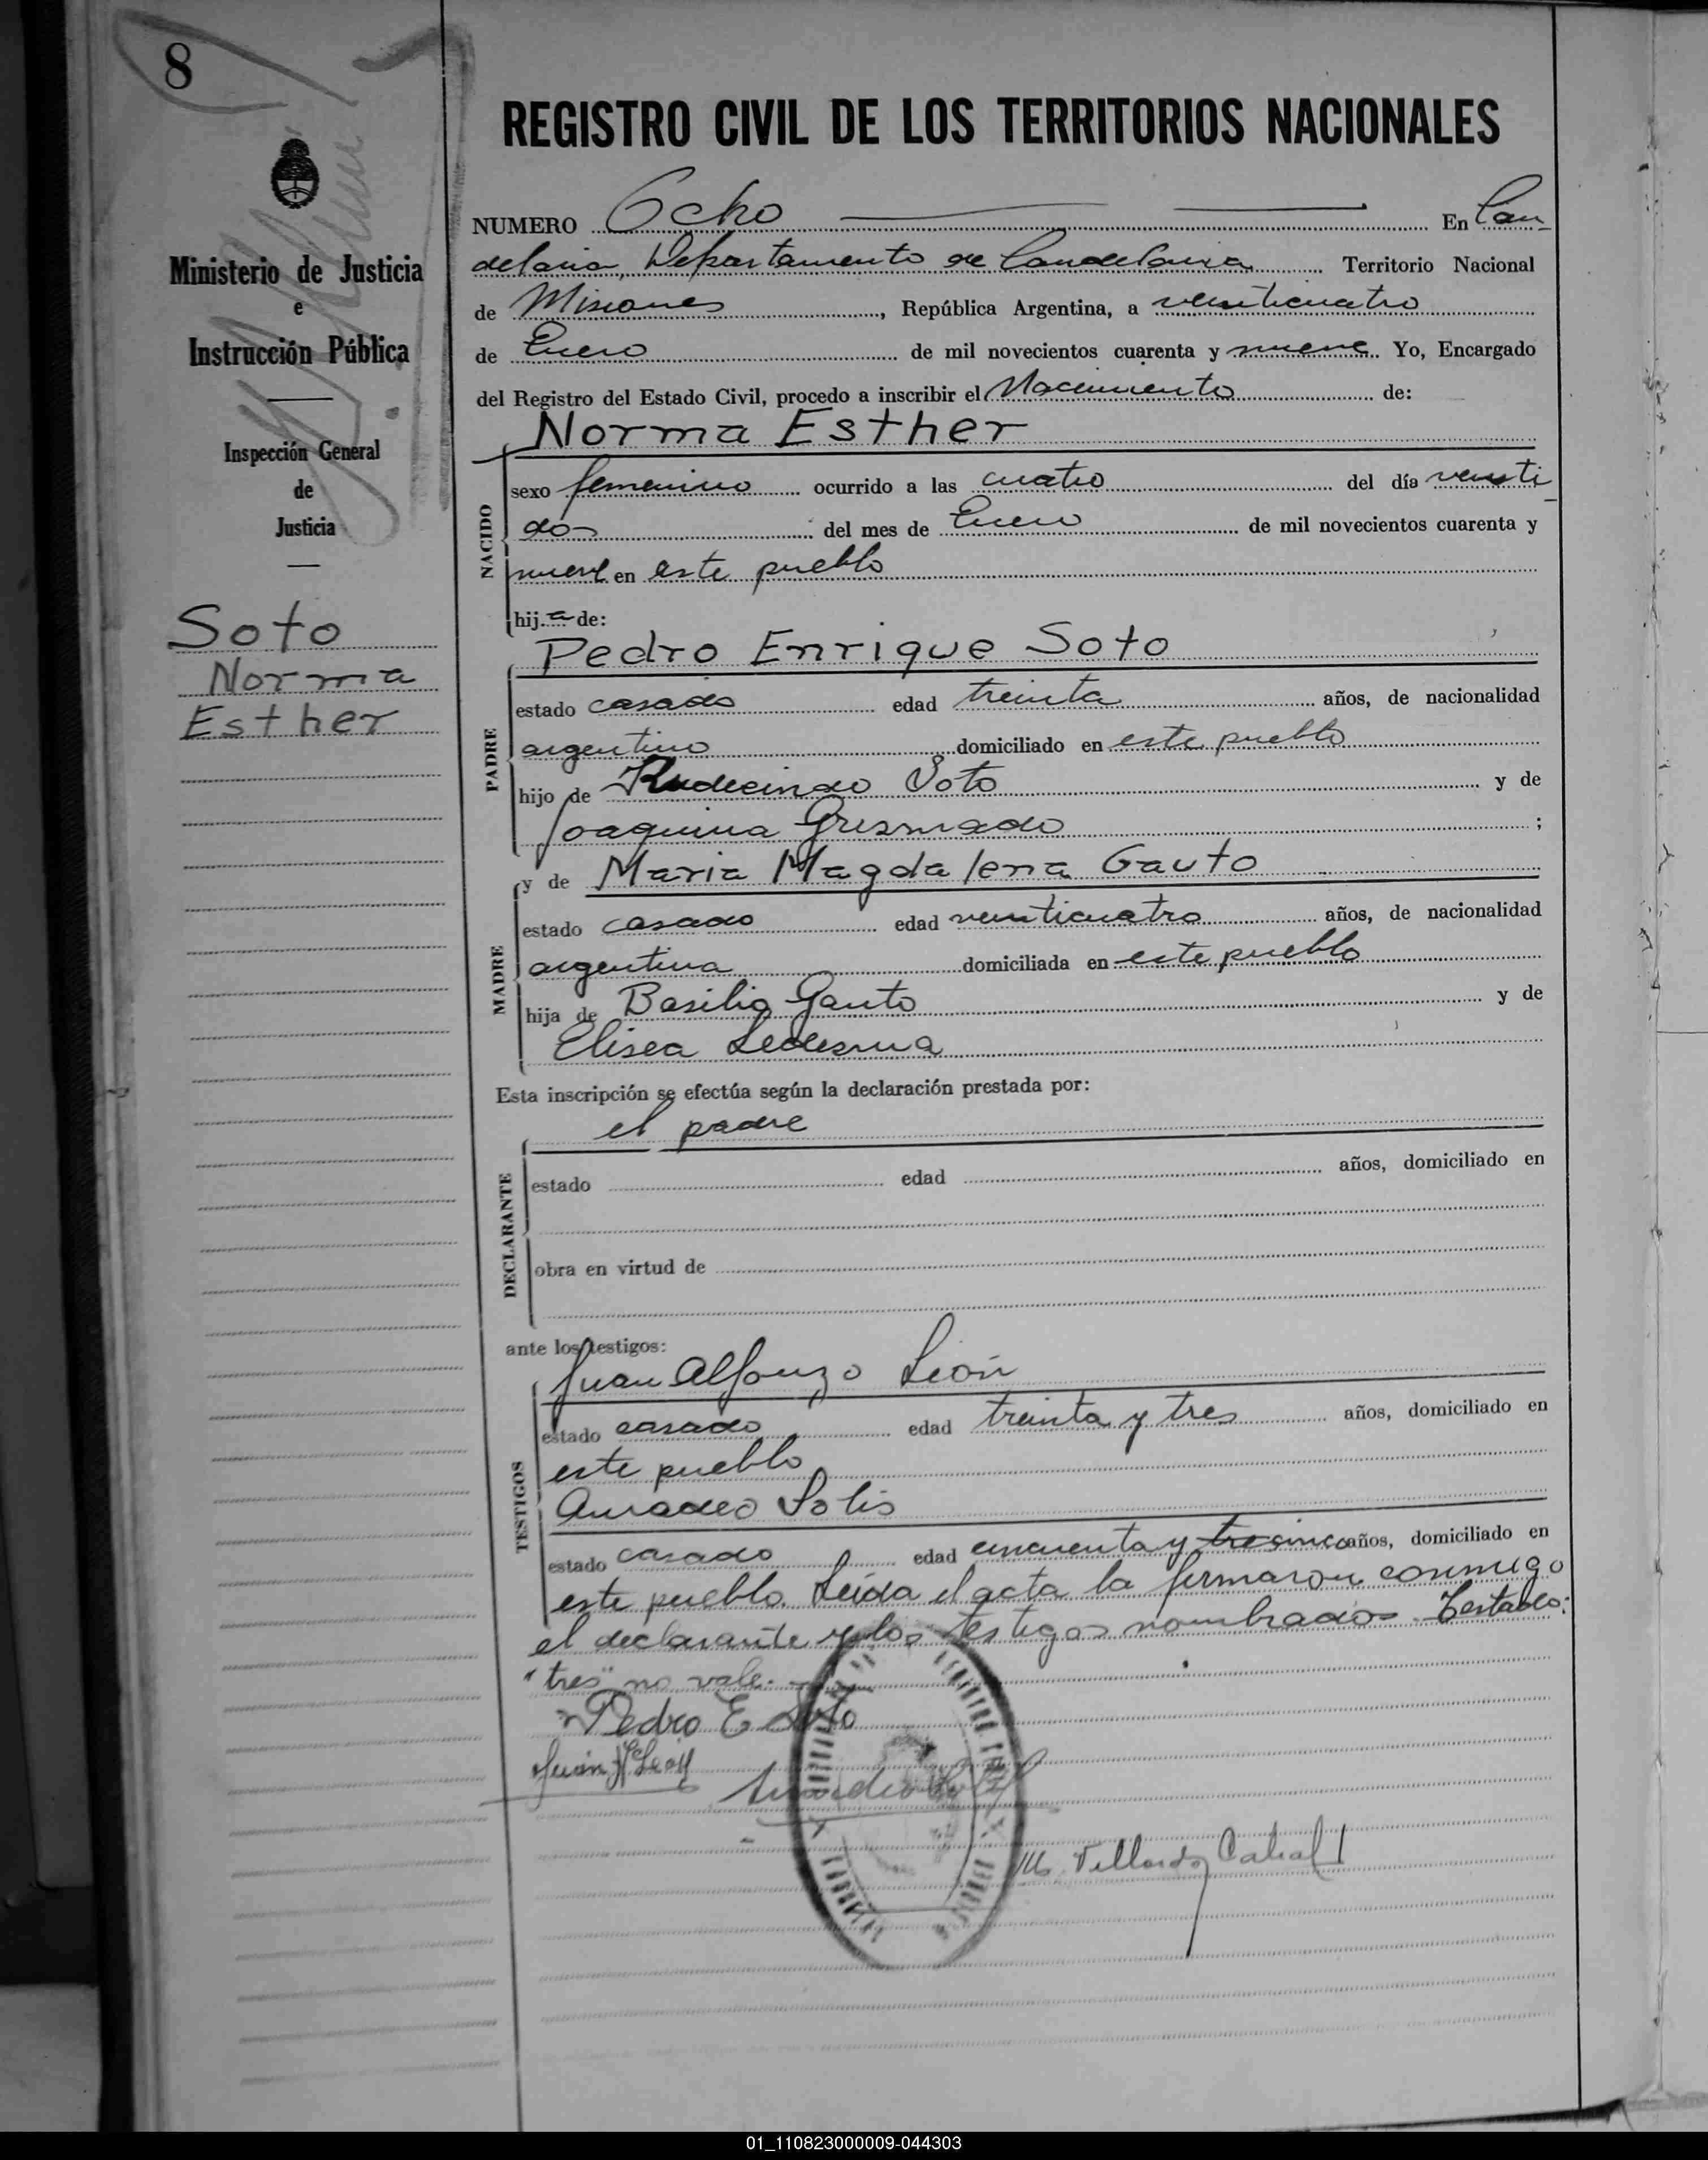 8
REGISTRO CIVIL DE LOS TERRITORIOS NACIONALES
Ministerio de Justicia
e
Instrucción Pública
Inspección General
de
Justicia
Soto
Norma
Esther
NUMERO Ocho En Can-
delaria, Departamento de Candelaria Territorio Nacional
de Misiones, República Argentina, a veinticuatro
de Enero de mil novecientos cuarenta y nueve. Yo, Encargado
del Registro del Estado Civil, procedo a inscribir el Nacimiento de:
Norma Esther
NACIDO
sexo femenino ocurrido a las cuatro del día veinti-
dos del mes de Enero de mil novecientos cuarenta y
nueve en este pueblo
hija de:
Pedro Enrique Soto
PADRE
estado casado edad treinta años, de nacionalidad
argentino domiciliado en este pueblo
hijo de Rudecindo Soto y de
Joaquina ;
y de Maria Magdalena Gauto
MADRE
estado casado edad veinticuatro años, de nacionalidad
argentina domiciliada en este pueblo
hija de Basilio Gauto y de
Elisea Ledesma
Esta inscripción se efectúa según la declaración prestada por:
el padre
DECLARANTE
estado edad años, domiciliado en
obra en virtud de
ante los testigos:
Juan Alfonzo León
TESTIGOS
estado casado edad treinta y tres años, domiciliado en
este pueblo
Amadeo Solis
estado casado edad cincuenta y tres cinco años, domiciliado en
este pueblo. Leída el acta la firmaron conmigo
el declarante y los testigos nombrados. Testado:
"tres" no vale.
Pedro E Soto
Juan A León
Amadeo Solis
Cabral
01_110823000009-044303